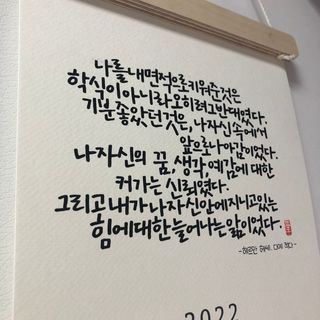 나를 내면적으로 키워준 것은
학식이 아니라 오히려 그 반대였다.
기분 좋았던 것은, 나 자신 속에서
앞으로 나아감이었다.
나 자신의 꿈, 생각, 예감에 대한
커가는 신뢰였다.
그리고 내가 나 자신 안에 지니고 있는
힘에 대한 늘어나는 앎이었다.
-헤르만 헤세. 다미 적다-
2022